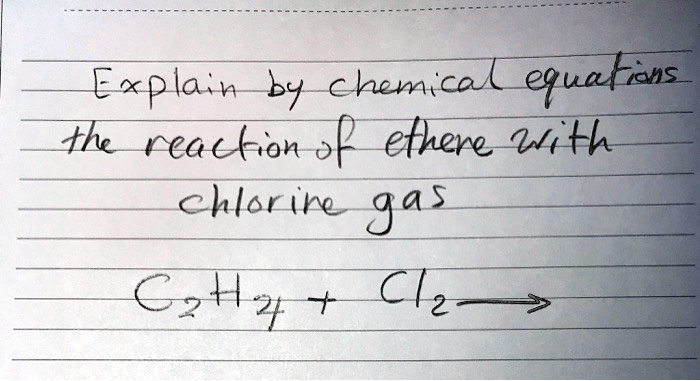 Explain by chemical equations
the reaction of ethene with
chlorine gas
C₂H₄ + Cl₂ ⟶